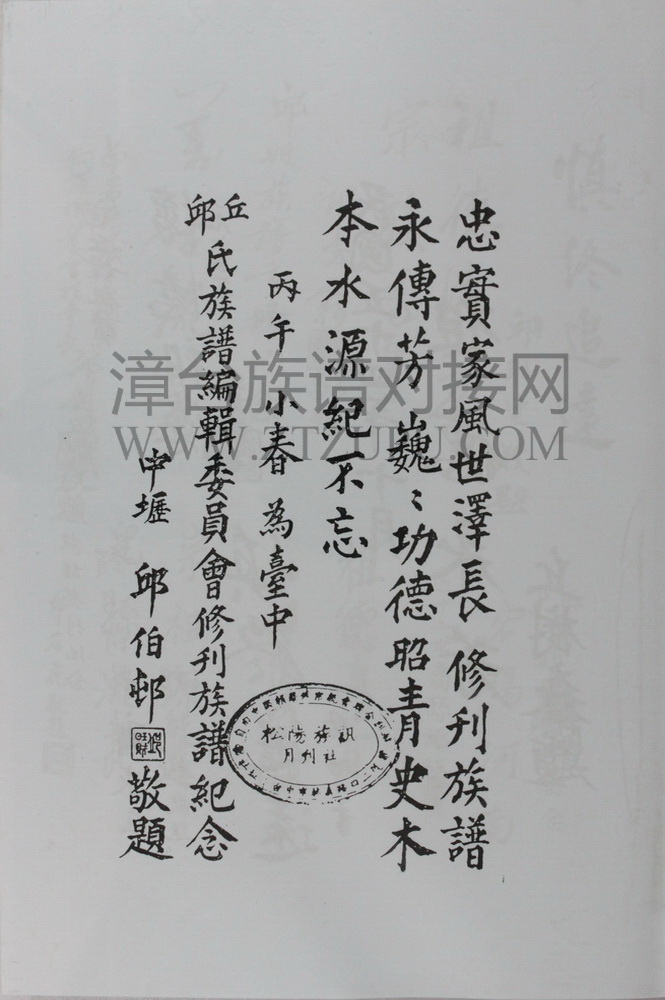 忠實家風世澤長修刋族譜
永傳芳巍〻功德昭青史木
本水源紀不忘
丙午小春為臺中
丘邱氏族譜編輯委員會修刋族譜紀念
中壢邱伯邨敬題
松陽族訊
月刋社
漳台族谱对接网
WWW.ZTZUPU.COM